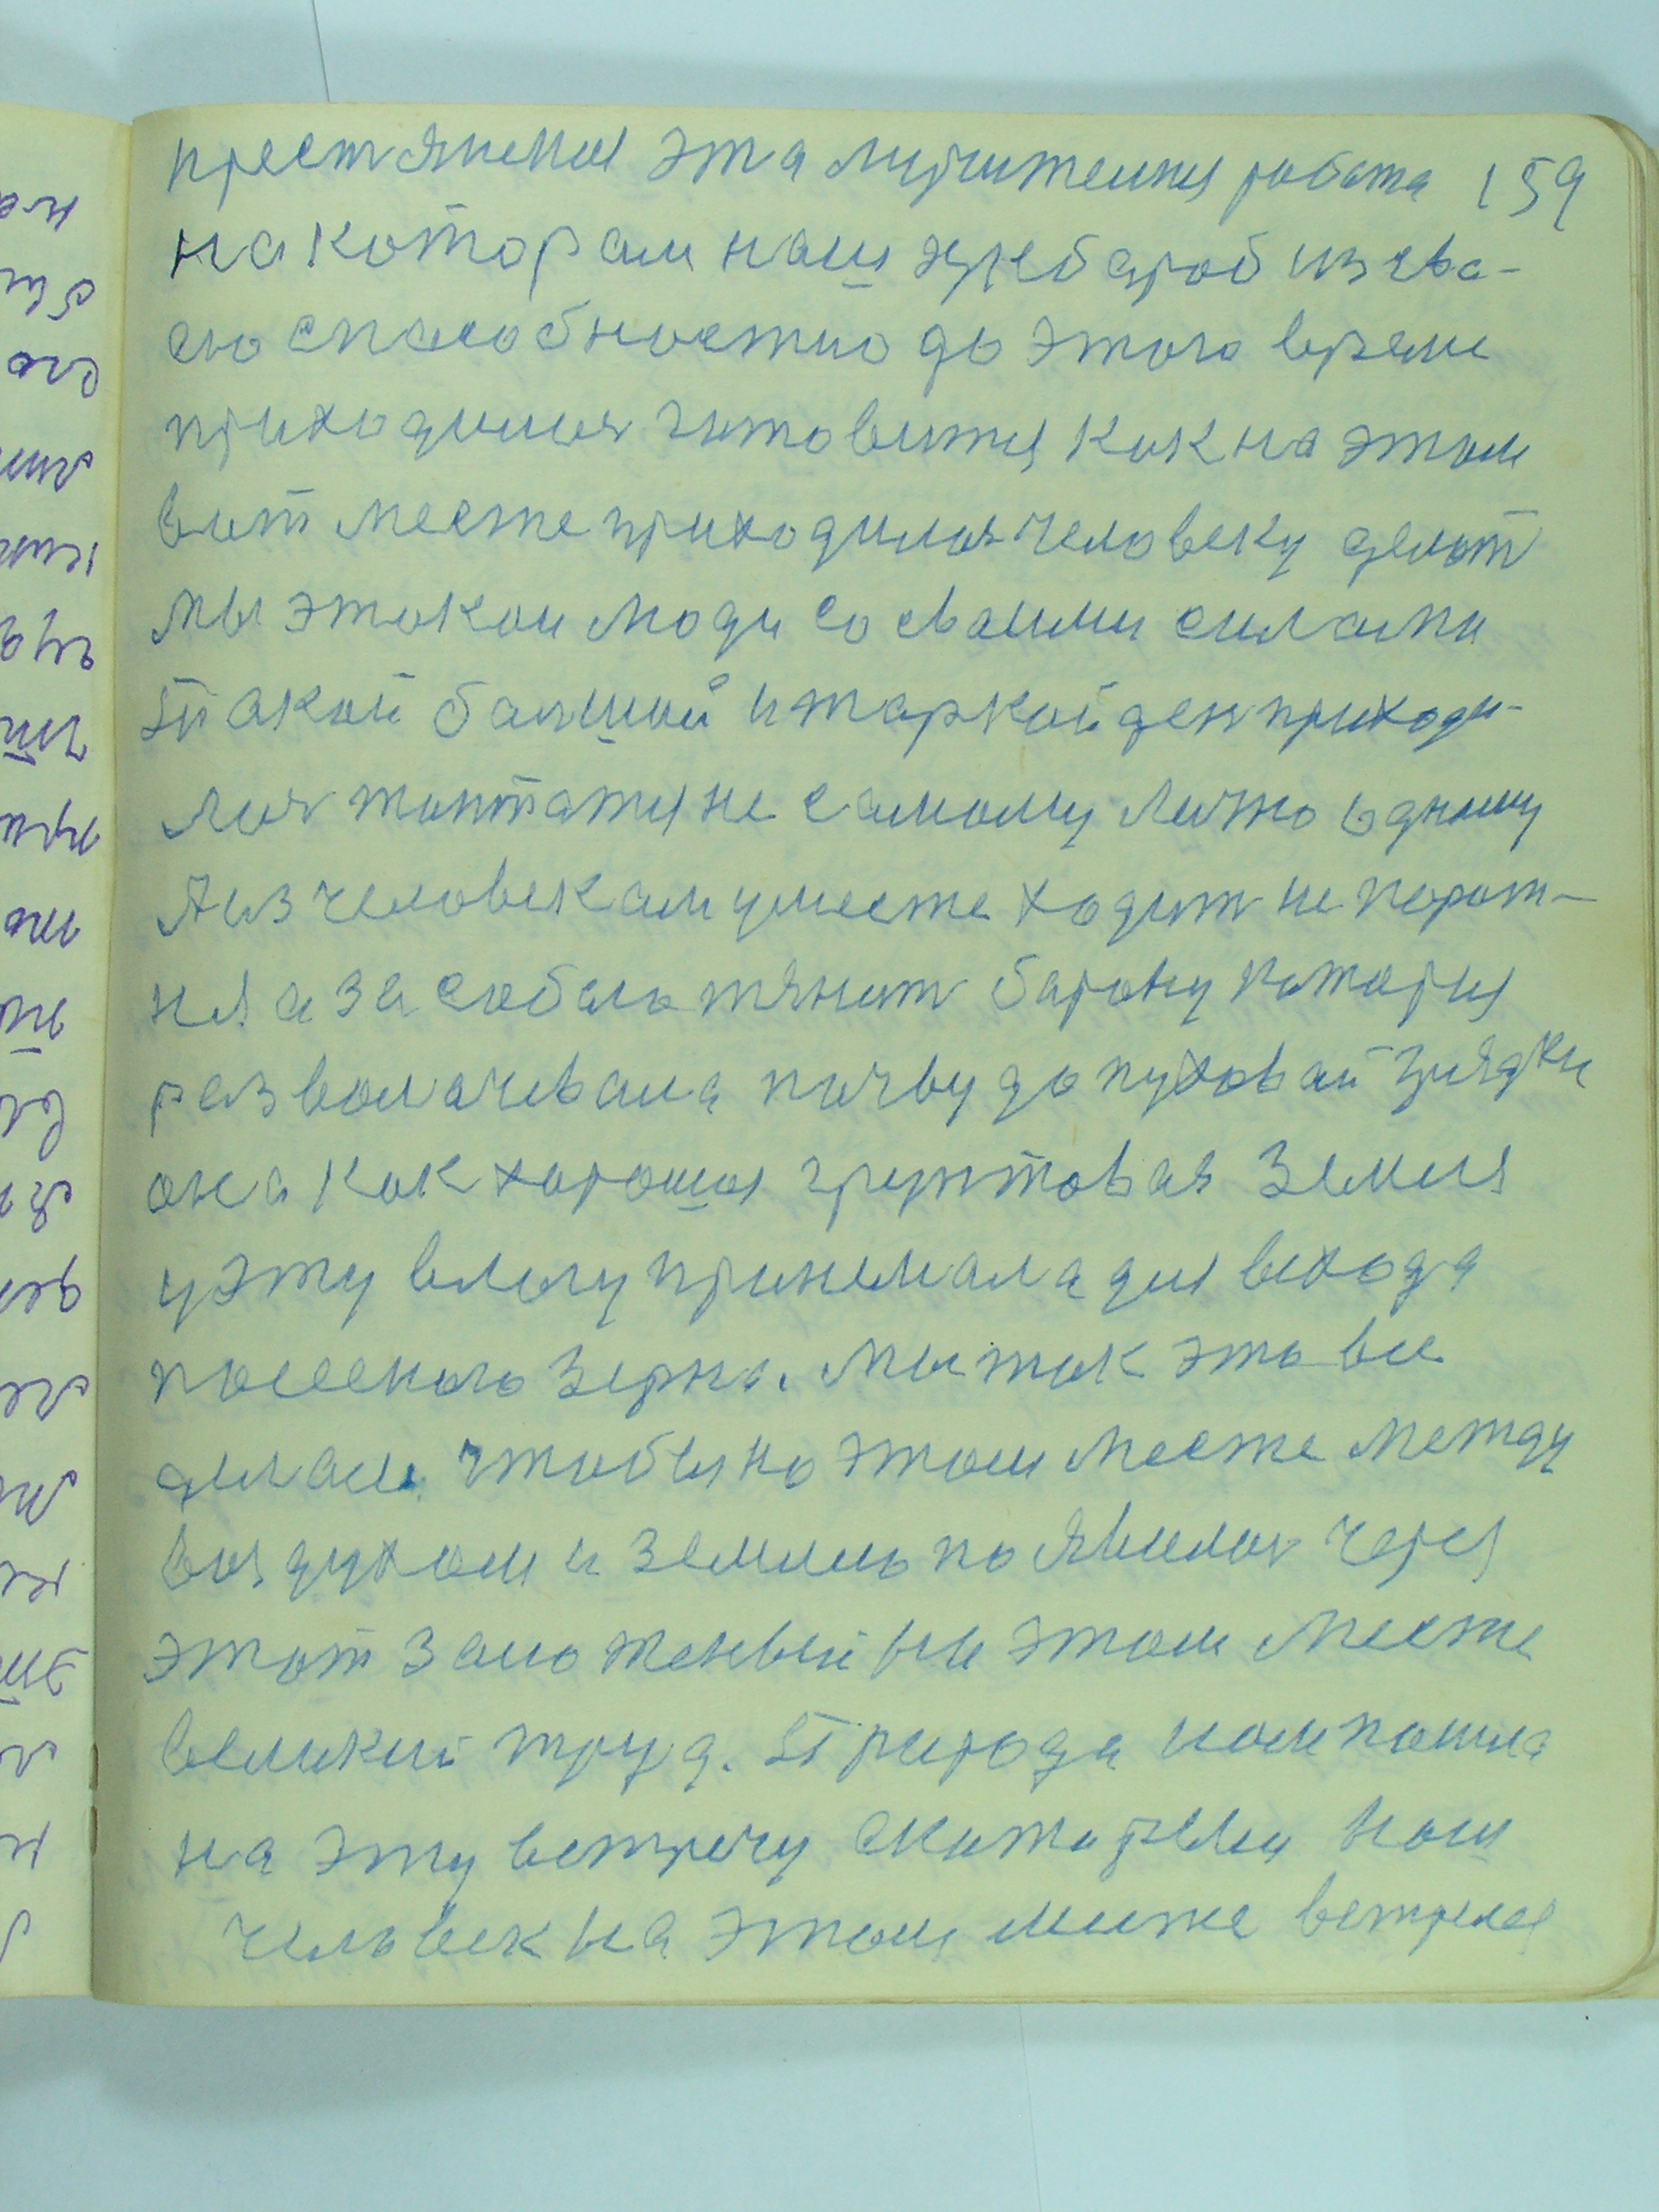 крестянема эта мучительная работа 159
на котором наш хлебароб из сва-
ею способностию до этого време
приходилися готовится как на этом
вот месте приходился человеку делат
мы этакои люди со сваими силами
Такой балшой и жаркой ден приходи-
лися топтатця не самому лично одному
А из человекам уместе ходит не порож-
ня а за собаю тянит барону которая
разволачевала почву до пуховай грядки
она как хорошая грунтовая земля
у эту влагу принемала для вехода
посееного зерна. Мы так это все
делали чтобы на этом месте между
воздухом и землею появился через
этот заложеный на этом месте
великий труд. Природа нам пошла
на эту встречу скоторыми наш
человек на этом месте встречая